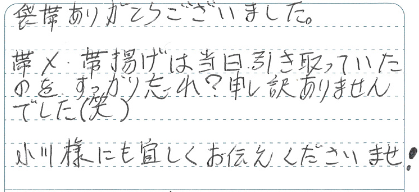 袋帯ありがとうございました。
帯〆・帯揚げは当日引き取っていた
のをすっかり忘れ?申し訳ありません
でした(笑)
小川様にも宜しくお伝えくださいませ!